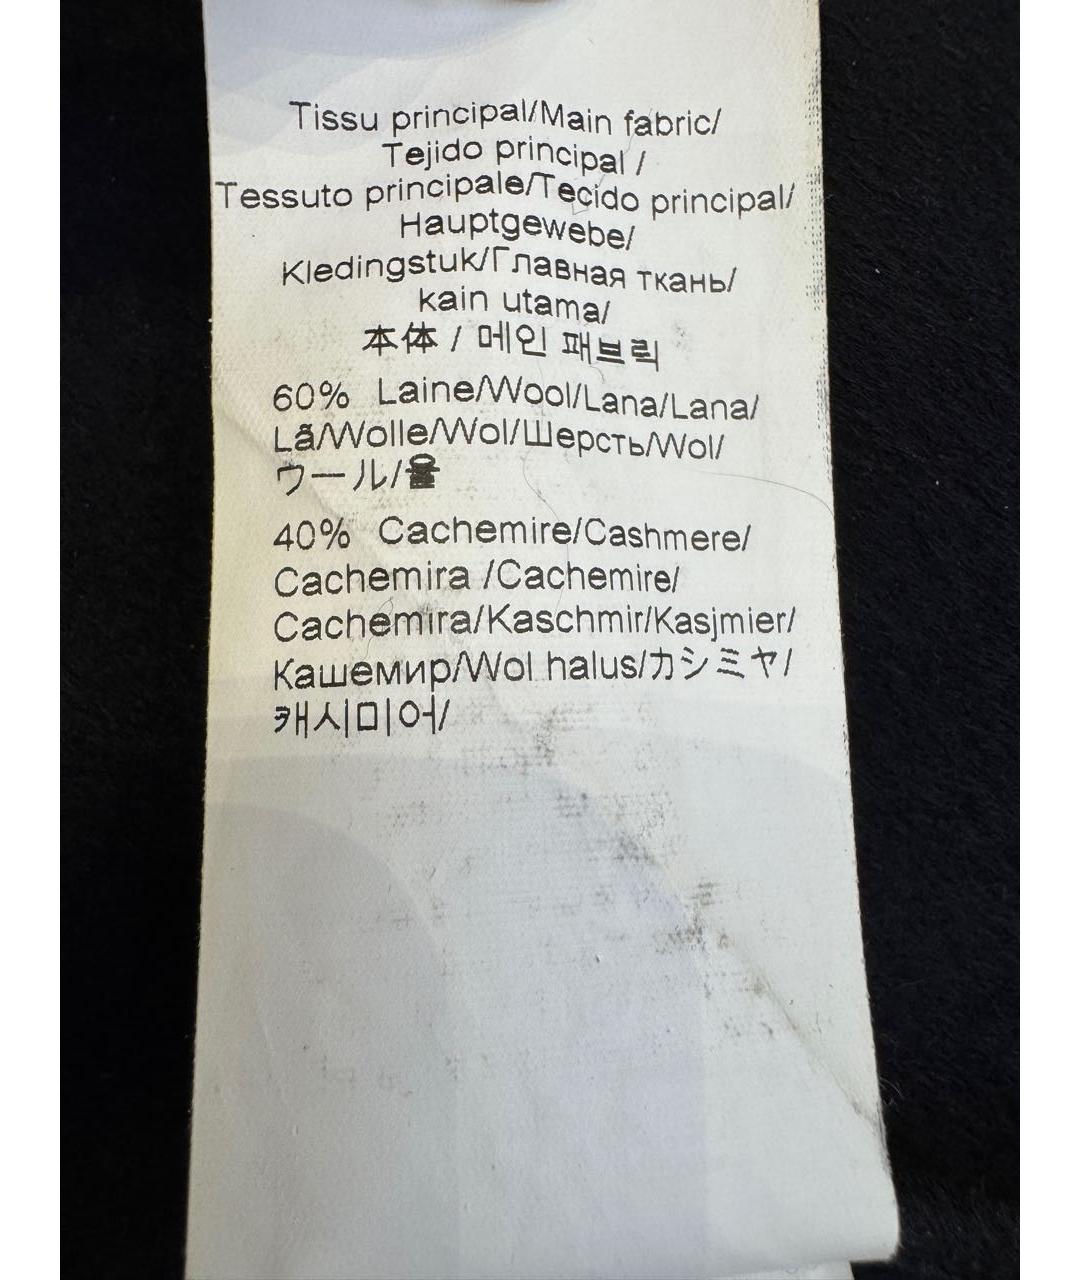 Tissu principal/Main fabric/
Tejido principal /
Tessuto principale/Tecido principal/
Hauptgewebe/
Kledingstuk/Главная ткань/
kain utama/
本体 / 메인 패브릭
60% Laine/Wool/Lana/Lana/
Lã/Wolle/Wol/Шерсть/Wol/
ウール/울
40% Cachemire/Cashmere/
Cachemira /Cachemire/
Cachemira/Kaschmir/Kasjmier/
Кашемир/Wol halus/カシミヤ/
캐시미어/